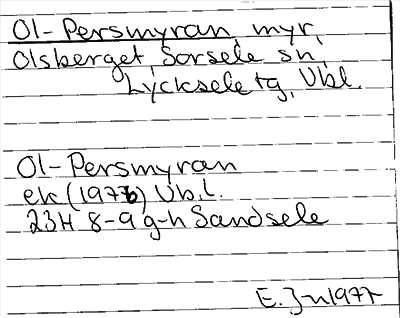 Ol-Persmyran, myr,
Olsberget, Sorsele sn,
Lycksele tg, Vbl.
Ol-Persmyran
ek (1976) Vb.l.
23H 8-9 g-h Sandsele
E. Jn 1977